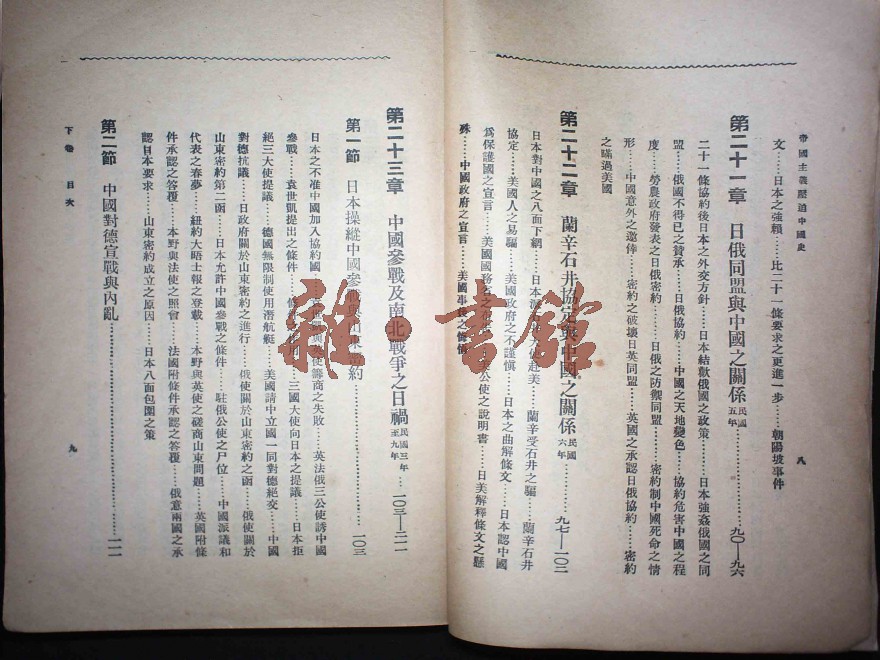 帝國主義壓迫中國史
八
文……日本之強賴……比二十一條要求之更進一步……朝陽坡事件
第二十一章 日俄同盟與中國之關係 民國五年……九〇—九六
二十一條協約後日本之外交方針……日本結歡俄國之政策……日本強姦俄國之同
盟……俄國不得已之贊承……日俄協約……中國之天地變色……協約危害中國之程
度……勞農政府發表之日俄密約……日俄之防禦同盟……密約制中國死命之情
形……中國意外之邀倖……密約之破壞日英同盟……英國之承認日俄協約……密約
之瞞過美國
第二十二章 蘭辛石井協定與中國之關係 民國六年……九七—一〇二
日本對中國之八面下網……日本派石井大使赴美……蘭辛受石井之騙……蘭辛石井
協定……美國人之易騙……美國政府之不謹慎……日本之曲解條文……日本認中國
為保護國之宣言……美國國務 公使之說明書……日美解釋條文之懸
殊……中國政府之宣言……美國事後之
第二十三章 中國參戰及南北戰爭之日禍 民國三年至九年 一〇三—二一一
第一節 日本操縱中國參戰與山東密約……一〇三
日本之不准中國加入協約國 使籌商之失敗……英法俄三公使誘中國
參戰……袁世凱提出之條件……條件之 用……三國大使向日本之提議……日本拒
絕三大使提議……德國無限制使用潛航艇……美國請中立國一同對德絕交……中國
對德抗議……日政府關於山東密約之進行……俄使關於山東密約之函……俄使關於
山東密約第二函……日本允許中國參戰之條件……駐俄公使之尸位……中國派議和
代表之春夢……紐約大晤士報之登載……本野與英使之磋商山東問題……英國附條
件承認之答覆……本野與法使之照會……法國附條件承認之答覆……俄意兩國之承
認日本要求……山東密約成立之原因……日本八面包圍之策
第二節 中國對德宣戰與內亂……一一一
下卷 目次
九
雜·書館